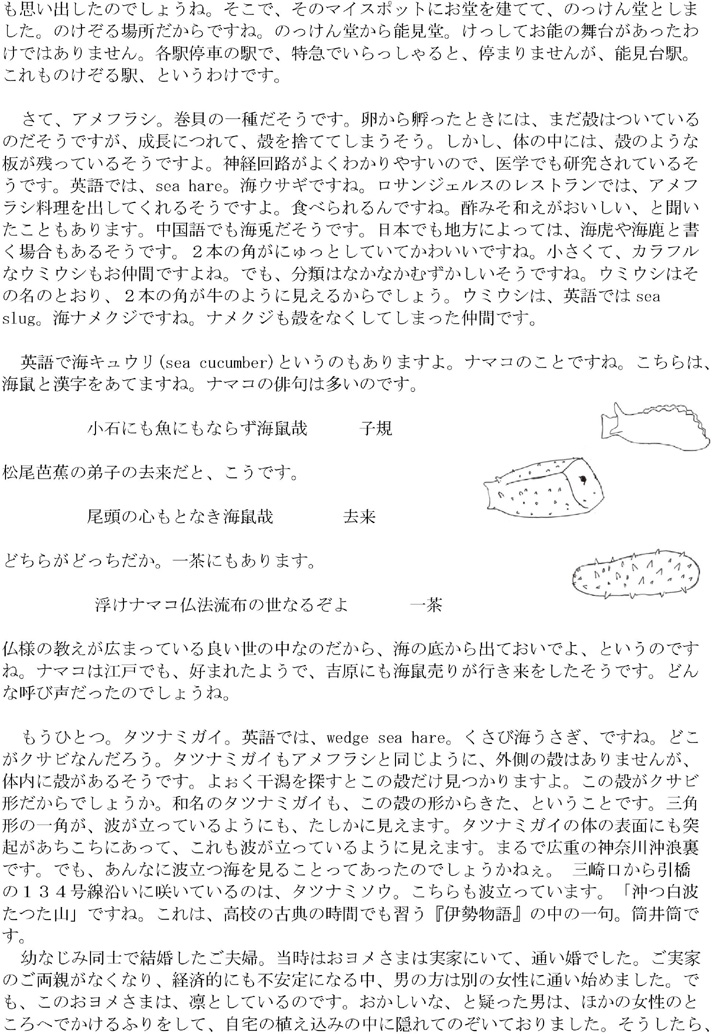 も思い出したのでしょうね。そこで、そのマイスポットにお堂を建てて、のっけん堂としま
した。のけぞる場所だからですね。のっけん堂から能見堂。けっしてお能の舞台があったわ
けではありません。各駅停車の駅で、特急でいらっしゃると、停まりませんが、能見台駅。
これものけぞる駅、というわけです。
さて、アメフラシ。巻貝の一種だそうです。卵から孵ったときには、まだ殻はついている
のだそうですが、成長につれて、殻を捨ててしまうそう。しかし、体の中には、殻のような
板が残っているそうですよ。神経回路がよくわかりやすいので、医学でも研究されているそ
うです。英語では、sea hare。海ウサギですね。ロサンジェルスのレストランでは、アメフ
ラシ料理を出してくれるそうですよ。食べられるんですね。酢みそ和えがおいしい、と聞い
たこともあります。中国語でも海兎だそうです。日本でも地方によっては、海虎や海鹿と書
く場合もあるそうです。２本の角がにゅっとしていてかわいいですね。小さくて、カラフル
なウミウシもお仲間ですよね。でも、分類はなかなかむずかしいそうですね。ウミウシはそ
の名のとおり、２本の角が牛のように見えるからでしょう。ウミウシは、英語では sea
slug。海ナメクジですね。ナメクジも殻をなくしてしまった仲間です。
英語で海キュウリ(sea cucumber)というのもありますよ。ナマコのことですね。こちらは、
海鼠と漢字をあてますね。ナマコの俳句は多いのです。
小石にも魚にもならず海鼠哉　　　子規
松尾芭蕉の弟子の去来だと、こうです。
尾頭の心もとなき海鼠哉　　　　去来
どちらがどっちだか。一茶にもあります。
浮けナマコ仏法流布の世なるぞよ　　　　一茶
仏様の教えが広まっている良い世の中なのだから、海の底から出ておいでよ、というのです
ね。ナマコは江戸でも、好まれたようで、吉原にも海鼠売りが行き来をしたそうです。どん
な呼び声だったのでしょうね。
もうひとつ。タツナミガイ。英語では、wedge sea hare。くさび海うさぎ、ですね。どこ
がクサビなんだろう。タツナミガイもアメフラシと同じように、外側の殻はありませんが、
体内に殻があるそうです。よぉく干潟を探すとこの殻だけ見つかりますよ。この殻がクサビ
形だからでしょうか。和名のタツナミガイも、この殻の形からきた、ということです。三角
形の一角が、波が立っているようにも、たしかに見えます。タツナミガイの体の表面にも突
起があちこちにあって、これも波が立っているように見えます。まるで広重の神奈川沖浪裏
です。でも、あんなに波立つ海を見ることってあったのでしょうかねぇ。 三崎口から引橋
の１３４号線沿いに咲いているのは、タツナミソウ。こちらも波立っています。「沖つ白波
たつた山」ですね。これは、高校の古典の時間でも習う『伊勢物語』の中の一句。筒井筒で
す。
幼なじみ同士で結婚したご夫婦。当時はおヨメさまは実家にいて、通い婚でした。ご実家
のご両親がなくなり、経済的にも不安定になる中、男の方は別の女性に通い始めました。で
も、このおヨメさまは、凛としているのです。おかしいな、と疑った男は、ほかの女性のと
ころへでかけるふりをして、自宅の植え込みの中に隠れてのぞいておりました。そうしたら、